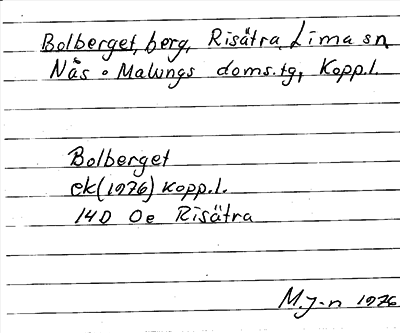 Bolberget, berg, Risätra Lima sn
Nås o Malungs doms.tg, Kopp.l.
Bolberget
ek(1976) Kopp.l.
14D 0e Risätra
M.J-n 1976